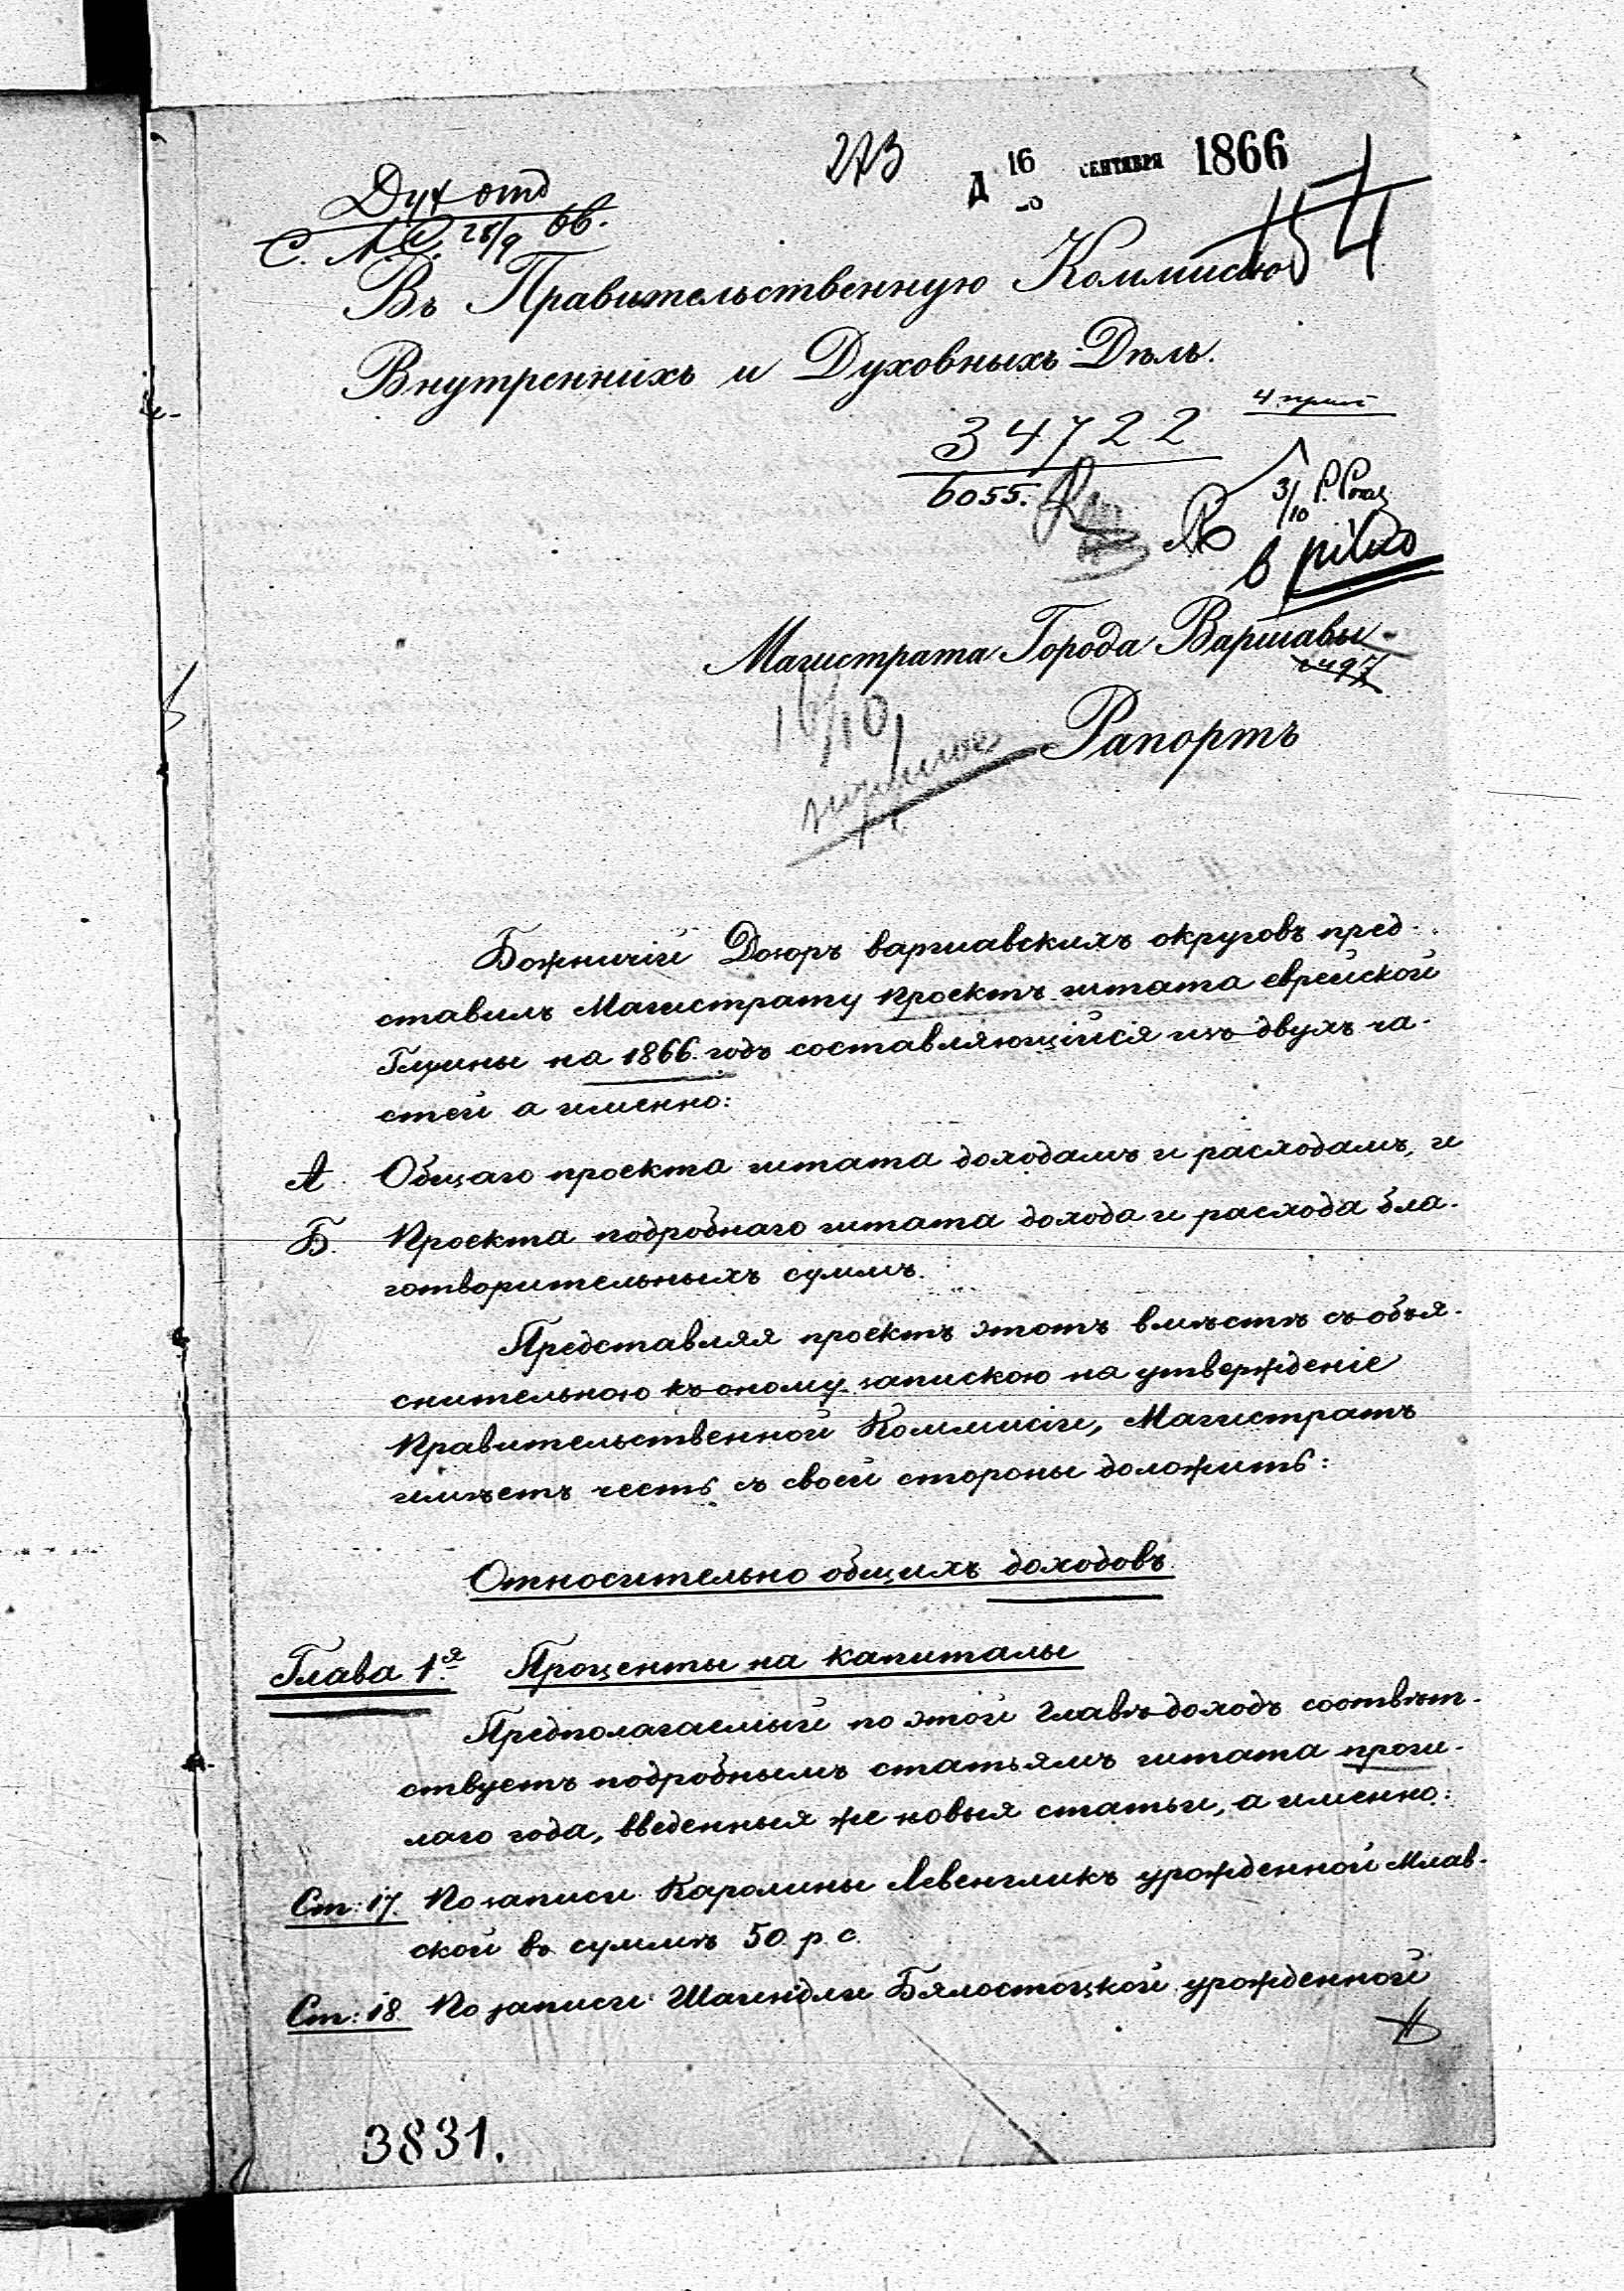 273
Д 16 СЕНТЯБРЯ 1866
154
Дух отд
28/9 66.
Въ Правительственную Коммисію
Внутреннихъ и Духовныхъ Дѣлъ.
34722
6055.
3/10
pilno
Магистрата Города Варшавы
16/10
Рапортъ
Божничій Дозоръ варшавскихъ округовъ пред-
ставилъ Магистрату проектъ штата еврейской
Гмины на 1866 годъ составляющійся изъ двухъ ча-
стей а именно:
А. Общаго проекта штата доходамъ и расходамъ, и
Б. Проекта подробнаго штата дохода и расхода бла-
готворительныхъ суммъ.
Представляя проектъ этотъ вмѣстѣ съ объя-
снительною къ оному запискою на утвержденіе
Правительственной Коммисіи, Магистратъ
имѣетъ честь съ своей стороны доложить:
Относительно общихъ доходовъ
Глава 1.я Проценты на капиталы
Предполагаемый по этой главѣ доходъ соотвѣт-
ствуетъ подробнымъ статьямъ штата прош-
лаго года, введенныя же новыя статьи, а именно:
Ст: 17. По записи Каролины Левенгликъ урожденной Млав-
ской въ суммѣ 50 р. с.
Ст: 18. По записи Шаиндли Бялостоцкой урожденной
3831.